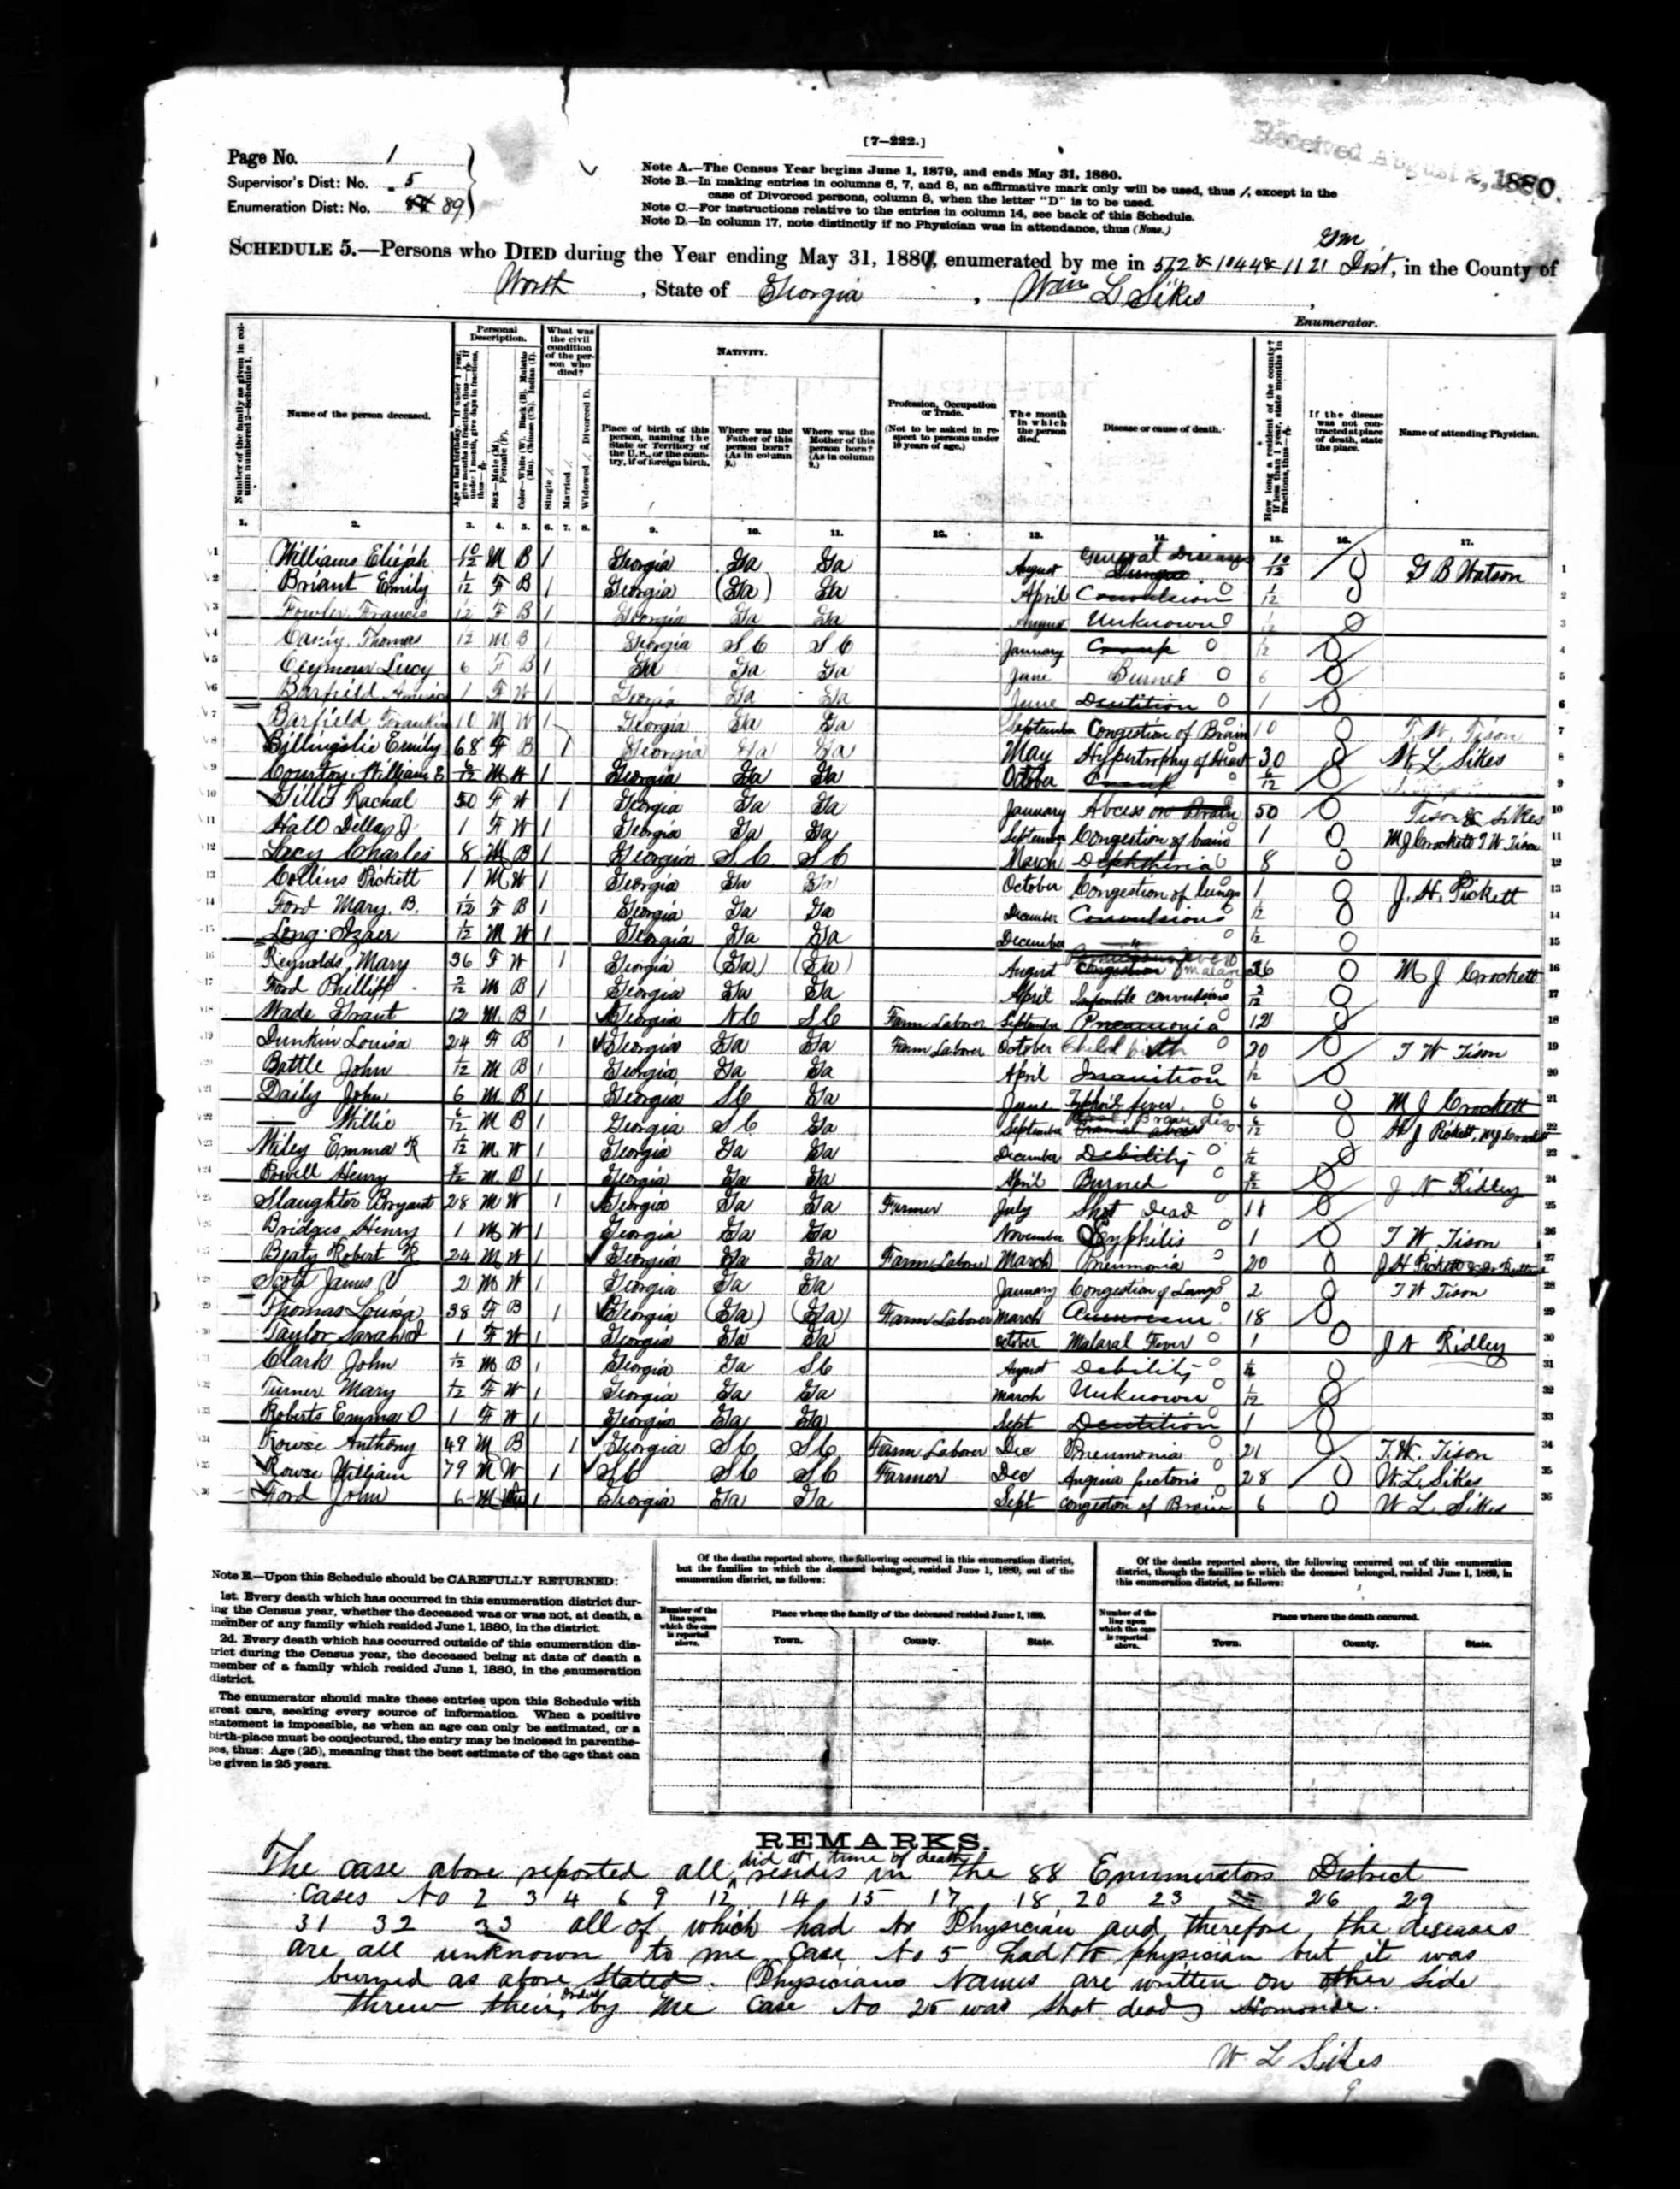 [7—222.]
Received August 2, 1880.
Page No. 1
Supervisor's Dist: No. 5
Enumeration Dist: No. 89
Note A.—The Census Year begins June 1, 1879, and ends May 31, 1880.
Note B.—In making entries in columns 6, 7, and 8, an affirmative mark only will be used, thus /, except in the
case of Divorced persons, column 8, when the letter "D" is to be used.
Note C.—For instructions relative to the entries in column 14, see back of this Schedule.
Note D.—In column 17, note distinctly if no Physician was in attendance, thus (None.)
SCHEDULE 5.—Persons who DIED during the Year ending May 31, 1880, enumerated by me in 572 & 1044 & 1121 GM Dist, in the County of
Worth, State of Georgia, Wm L Sikes
Enumerator.
Number of the family as given in column numbered 2—Schedule 1.
Name of the person deceased.
Personal Description.
Age at last birthday. If under 1 year, give months in fractions, thus— If under 1 month, give days in fractions, thus—
Sex—Male (M), Female (F).
Color—White (W), Black (B), Mulatto (Mu), Chinese (Ch), Indian (I).
What was the civil condition of the person who died?
Single /.
Married /.
Widowed /. Divorced D.
NATIVITY.
Place of birth of this person, naming the State or Territory of the U.S., or the country, if of foreign birth.
Where was the Father of this person born? (As in column 9.)
Where was the Mother of this person born? (As in column 9.)
Profession, Occupation or Trade.
(Not to be asked in respect to persons under 10 years of age.)
The month in which the person died.
Disease or cause of death.
How long a resident of the county? If less than 1 year, state months in fractions, thus—
If the disease was not contracted at place of death, state the place.
Name of attending Physician.
1. 2. 3. 4. 5. 6. 7. 8. 9. 10. 11. 12. 13. 14. 15. 16. 17.
1 Williams Elijah 10/12 M B 1 Georgia Ga Ga August General Diseases 10/12 G B Watson 1
2 Briant Emily 1/12 F B 1 Georgia (Ga) Ga April Convulsion 1/12 2
3 Fowler Francis 1/12 F B 1 Georgia Ga Ga August Unknown 1/12 3
4 Thomas 1/12 M B 1 Georgia S C S C January Croup 1/12 4
5 Lucy 6 F B 1 Ga Ga Ga June Burned 6 5
6 Barfield 1 F W 1 Georgia Ga Ga June Dentition 1 6
7 Barfield Frankin 10 M W 1 Georgia Ga Ga September Congestion of Brain 10 T. W. Tison 7
8 Billingslie Emily 68 F B 1 Georgia Ga Ga May Hypertrophy of Heart 30 W L Sikes 8
9 William E 6/12 M W 1 Georgia Ga Ga October Croup 6/12 9
10 Gillis Rachal 50 F W 1 Georgia Ga Ga January Abcess on Brain 50 Tison & Sikes 10
11 Hall Dellar J 1 F W 1 Georgia Ga Ga September Congestion of brain 1 M J Crockett T W Tison 11
12 Lacy Charles 8 M B 1 Georgia S C S C March Diphtheria 8 12
13 Collins Pickett 1 M W 1 Georgia Ga Ga October Congestion of lungs 1 J. H. Pickett 13
14 Ford Mary. B. 1/12 F B 1 Georgia Ga Ga December Convulsions 1/12 14
15 Long 1/12 M W 1 Georgia Ga Ga December " 1/12 15
16 Reynolds, Mary 36 F W 1 Georgia (Ga) (Ga) August Congestion 36 M J Crockett 16
17 Ford Phillip 2/12 M B 1 Georgia Ga Ga April Infantile convulsions 2/12 17
18 Wade Grant 12 M B 1 Georgia N C S C Farm Laborer September Pneumonia 12 18
19 Dunkin Louisa 24 F B 1 Georgia Ga Ga Farm Laborer October Child birth 20 T W Tison 19
20 Battle John 1/12 M B 1 Georgia Ga Ga April Inanition 1/12 20
21 Daily John 6 M B 1 Georgia S C Ga June fever 6 M J Crockett 21
22 — Willie 6/12 M B 1 Georgia S C Ga September 6/12 H J Pickett, M J Crockett 22
23 Miley Emma R 1/12 M W 1 Georgia Ga Ga December Debility 1/12 23
24 Powell Henry 8/12 M B 1 Georgia Ga Ga April Burned 8/12 J N Ridley 24
25 Slaughter Bryant 28 M W 1 Georgia Ga Ga Farmer July Shot Dead 11 25
26 Bridges Henry 1 M W 1 Georgia Ga Ga November Syphilis 1 T W Tison 26
27 Beaty Robert R 24 M W 1 Georgia Ga Ga Farm Laborer March Pneumonia 20 J H Pickett 27
28 Scott James 2 M W 1 Georgia Ga Ga January Congestion of Lungs 2 T W Tison 28
29 Thomas Louisa 38 F B 1 Georgia (Ga) (Ga) Farm Laborer March 18 29
30 Taylor Sarah J 1 F W 1 Georgia Ga Ga October Malaral Fever 1 J N Ridley 30
31 Clark John 1/12 M B 1 Georgia Ga S C August Debility 31
32 Turner Mary 1/12 F W 1 Georgia Ga Ga March Unknown 1/12 32
33 Roberts Emma O 1 F W 1 Georgia Ga Ga Sept Dentition 1 33
34 Rowse Anthony 49 M B 1 Georgia S C S C Farm Laborer Dec Pneumonia 21 T. W. Tison 34
35 Rowse William 79 M W 1 S C S C S C Farmer Dec Angina pectoris 28 W L Sikes 35
36 Ford John 6 M 1 Georgia Ga Ga Sept Congestion of Brain 6 W L Sikes 36
Note E.—Upon this Schedule should be CAREFULLY RETURNED:
1st. Every death which has occurred in this enumeration district during
the Census year, whether the deceased was or was not, at death, a
member of any family which resided June 1, 1880, in the district.
2d. Every death which has occurred outside of this enumeration district
during the Census year, the deceased being at date of death a
member of a family which resided June 1, 1880, in the enumeration
district.
The enumerator should make these entries upon this Schedule with
great care, seeking every source of information. When a positive
statement is impossible, as when an age can only be estimated, or a
birth-place must be conjectured, the entry may be inclosed in parentheses,
thus: Age (25), meaning that the best estimate of the age that can
be given is 25 years.
Of the deaths reported above, the following occurred in this enumeration district,
but the families to which the deceased belonged, resided June 1, 1880, out of the
enumeration district, as follows:
Number of the line upon which the case is reported above.
Place where the family of the deceased resided June 1, 1880.
Town. County. State.
Of the deaths reported above, the following occurred out of this enumeration
district, though the families to which the deceased belonged, resided June 1, 1880, in
this enumeration district, as follows:
Number of the line upon which the case is reported above.
Place where the death occurred.
Town. County. State.
REMARKS.
The case above reported all did at time of death resides in the 88 Enumerators District
Cases No 2 3 4 6 9 12 14 15 17 18 20 23 26 29
31 32 33 all of which had No Physician and therefore the diseases
are all unknown to me Case No 5 had No physician but it was
burned as above Stated. Physicians Names are written on other side
threw their orders by me Case No 25 was shot dead
W L Sikes